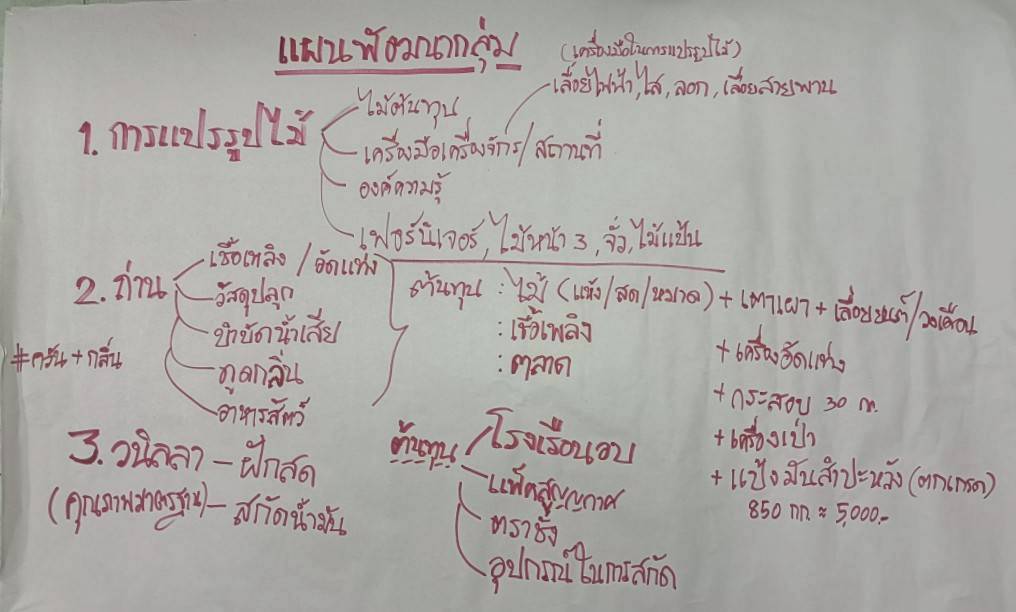 แผนพัฒนากลุ่ม
(เครื่องมือในการแปรรูปไม้)
เลื่อยไฟฟ้า, ไส, ลอก, เลื่อยสายพาน
1. การแปรรูปไม้
ไม้ต้นทุน
เครื่องมือเครื่องจักร/สถานที่
องค์ความรู้
เฟอร์นิเจอร์, ไม้หน้า 3, จั่ว, ไม้แป้น
2. ถ่าน
เชื้อเพลิง / อัดแท่ง
วัสดุปลูก
บำบัดน้ำเสีย
ดูดกลิ่น
อาหารสัตว์
#ควัน + กลิ่น
ต้นทุน : ไม้ (แห้ง/สด/หมาด) + เตาเผา + เลื่อยยนต์/วงเดือน
: เชื้อเพลิง
: ตลาด
+ เครื่องอัดแท่ง
+ กระสอบ 30 ก.
+ เครื่องเป่า
+ แป้งมันสำปะหลัง (ตกเกรด)
850 กก. ≈ 5,000.-
3. วนิลลา - ฝักสด
(คุณภาพมาตรฐาน) - สกัดน้ำมัน
ต้นทุน / โรงเรือนอบ
แพ็คสูญญกาศ
ตราชั่ง
อุปกรณ์ในการสกัด